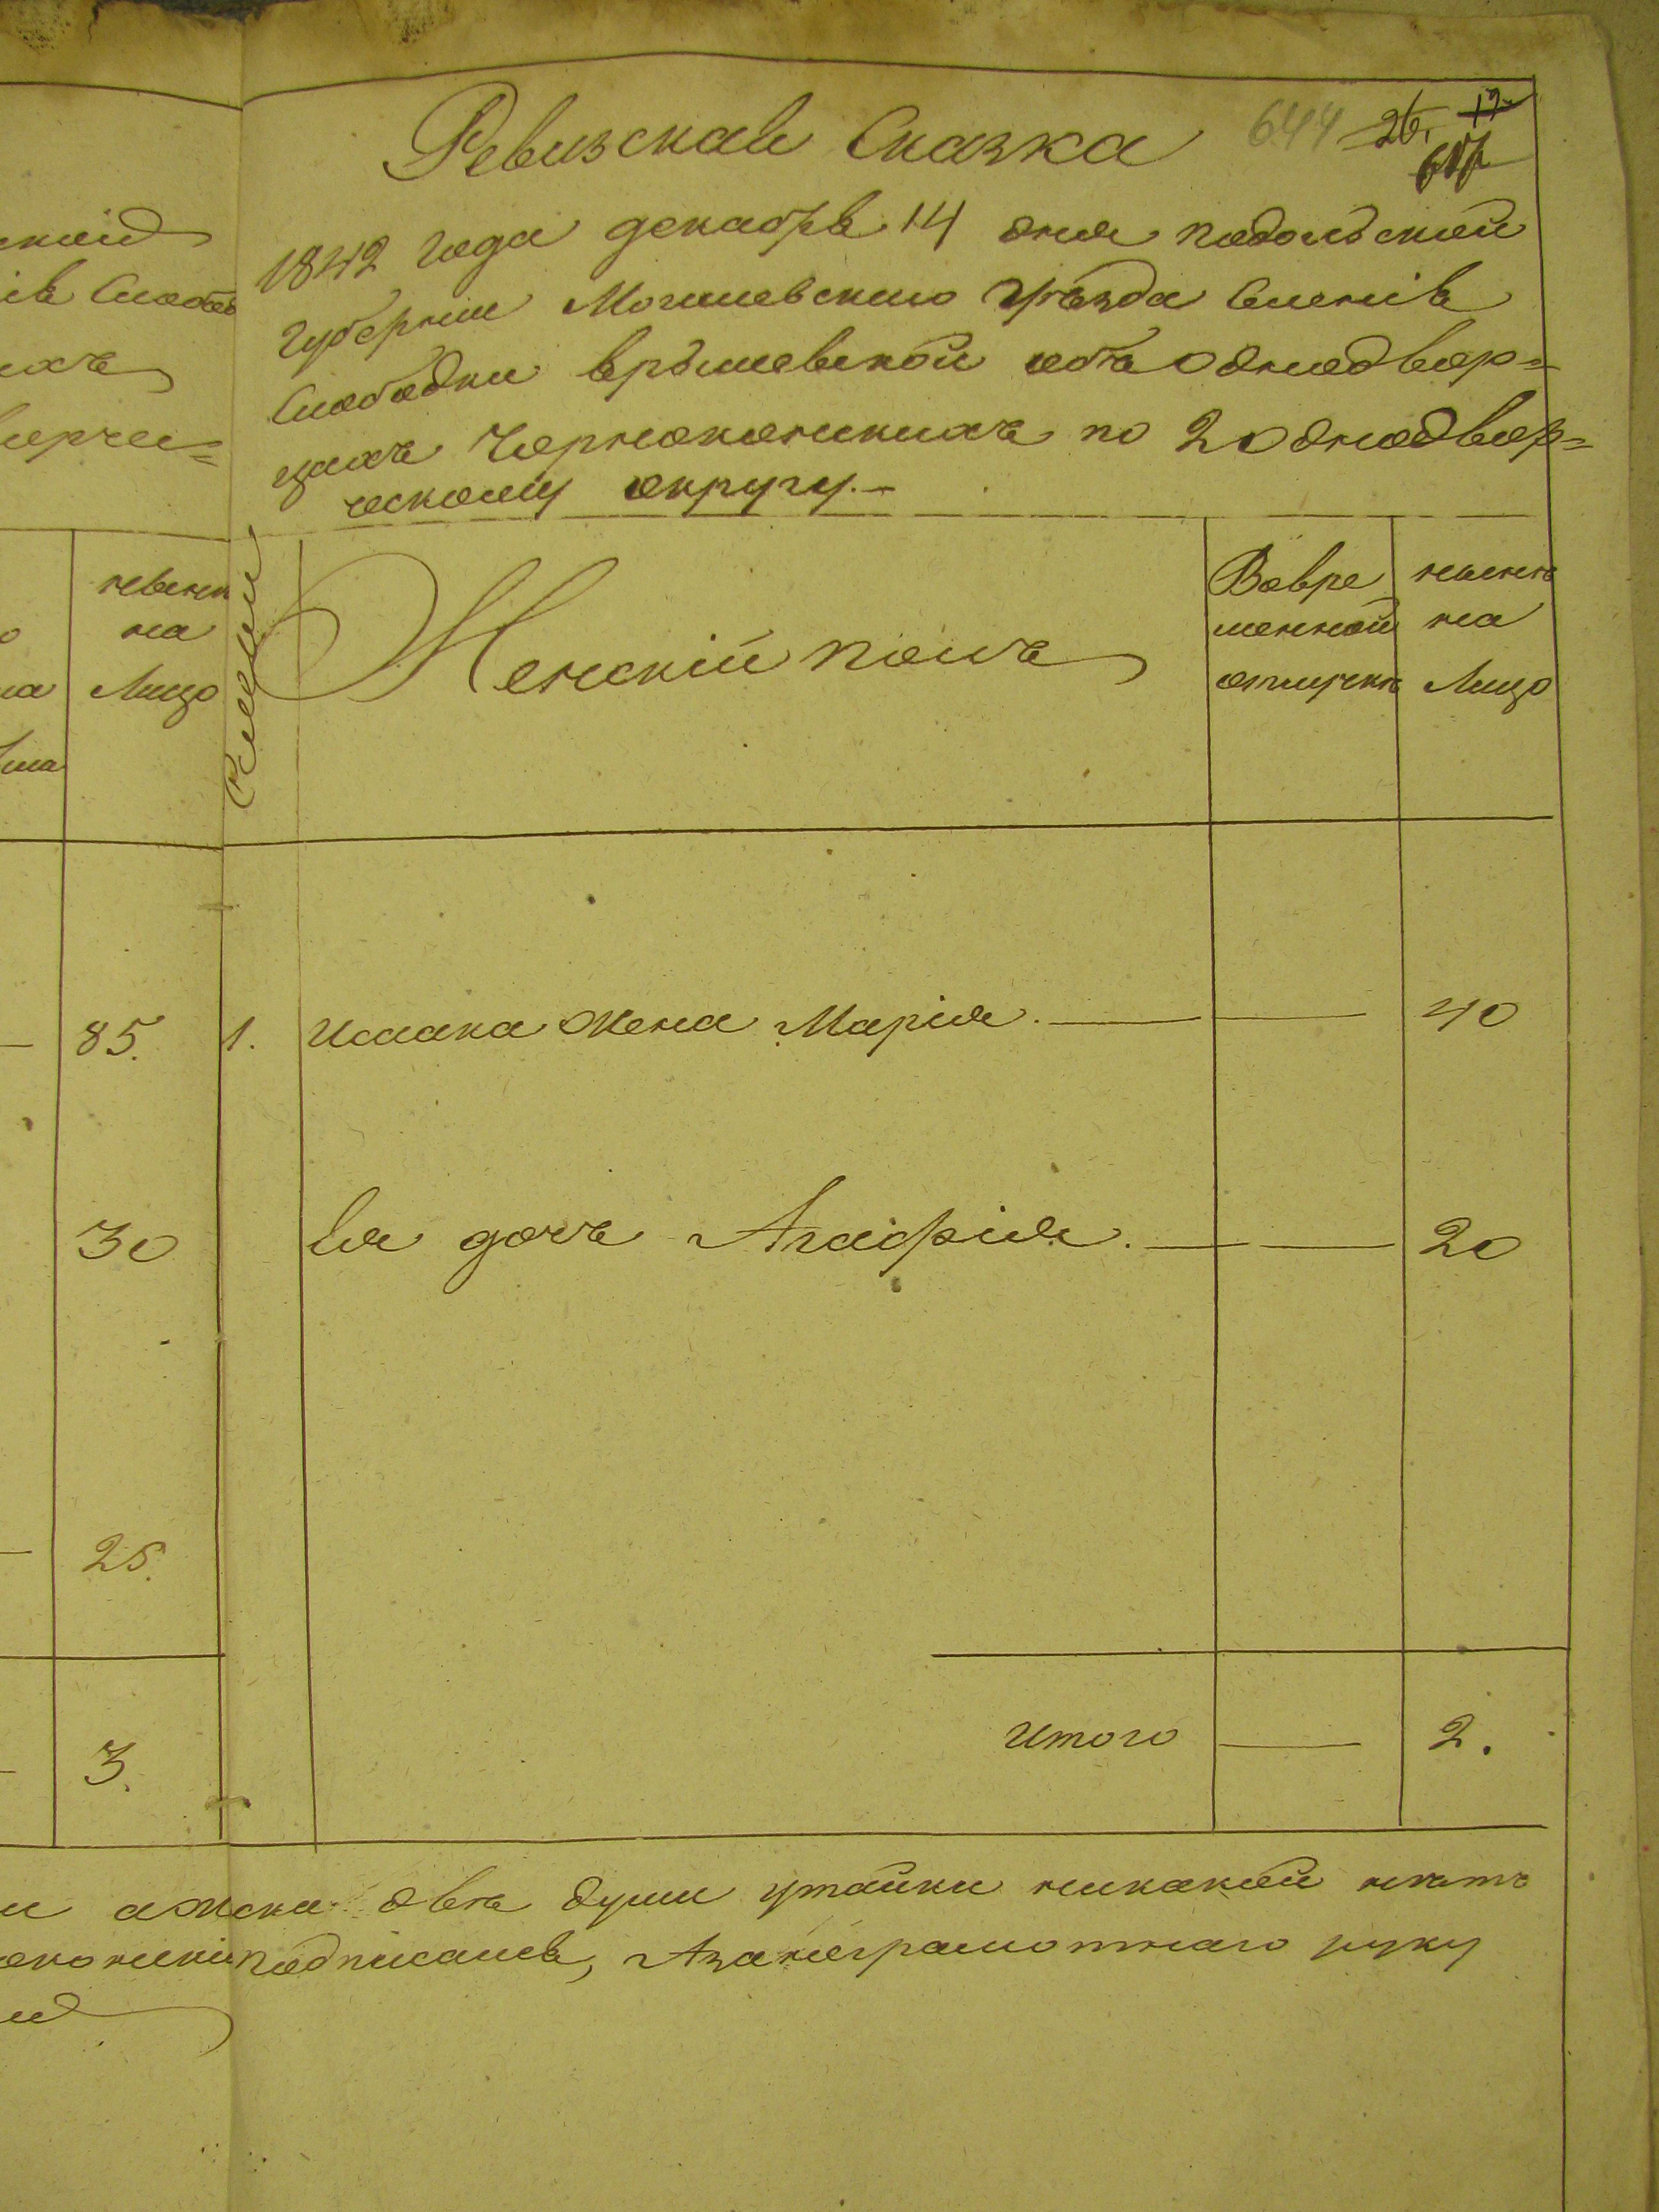 Ревизская Сказка 644 26. 17
1842 года декабря 14 дня подольской
губернии Могилевского Уѣзда Селенія
Слободки Ярышевской объ Однодвор=
цахъ Чорноконскихъ по 2 однодвор=
ческому округу.
ской
ія Слобод
ихъ
ворче=
нынѣ
на
Лицо
Семьи
Женскій полъ
Вовре
менной
отлучкѣ
нынѣ
на
Лицо
85. 1. Исаака Жена Марія. 40
30 Ея дочь Агафія. 20
25.
Итого 2.
3.
и а женска двѣ души утайки никакой нѣтъ
подписался, А за неграмотнаго руку